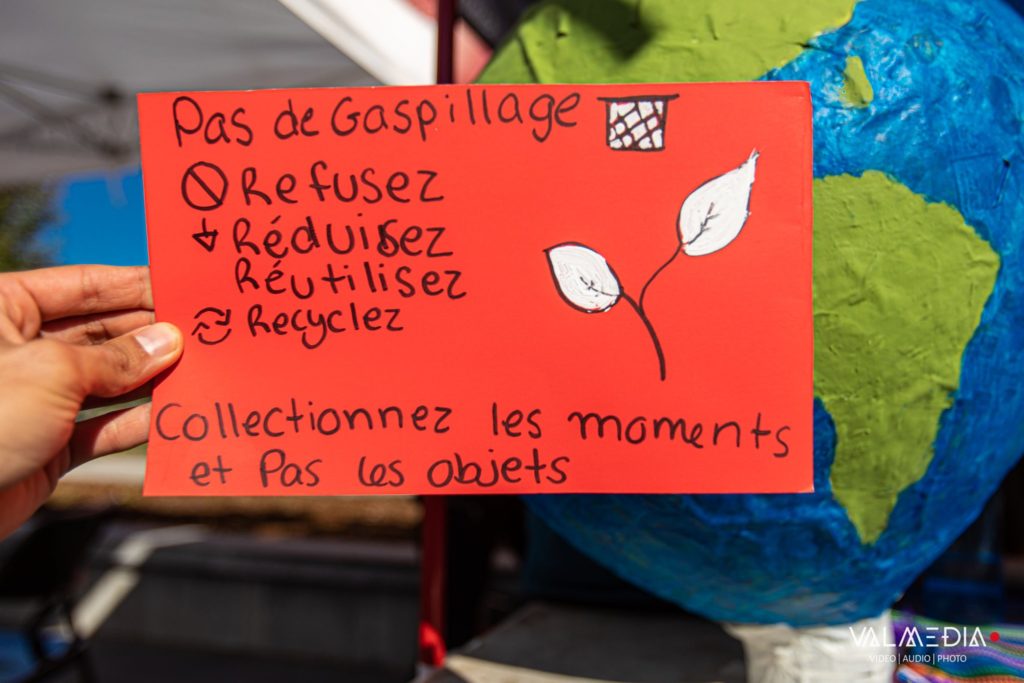 Pas de Gaspillage
Refusez
Réduisez
Réutilisez
Recyclez
Collectionnez les moments
et Pas les objets
VALMEDIA
VIDEO | AUDIO | PHOTO